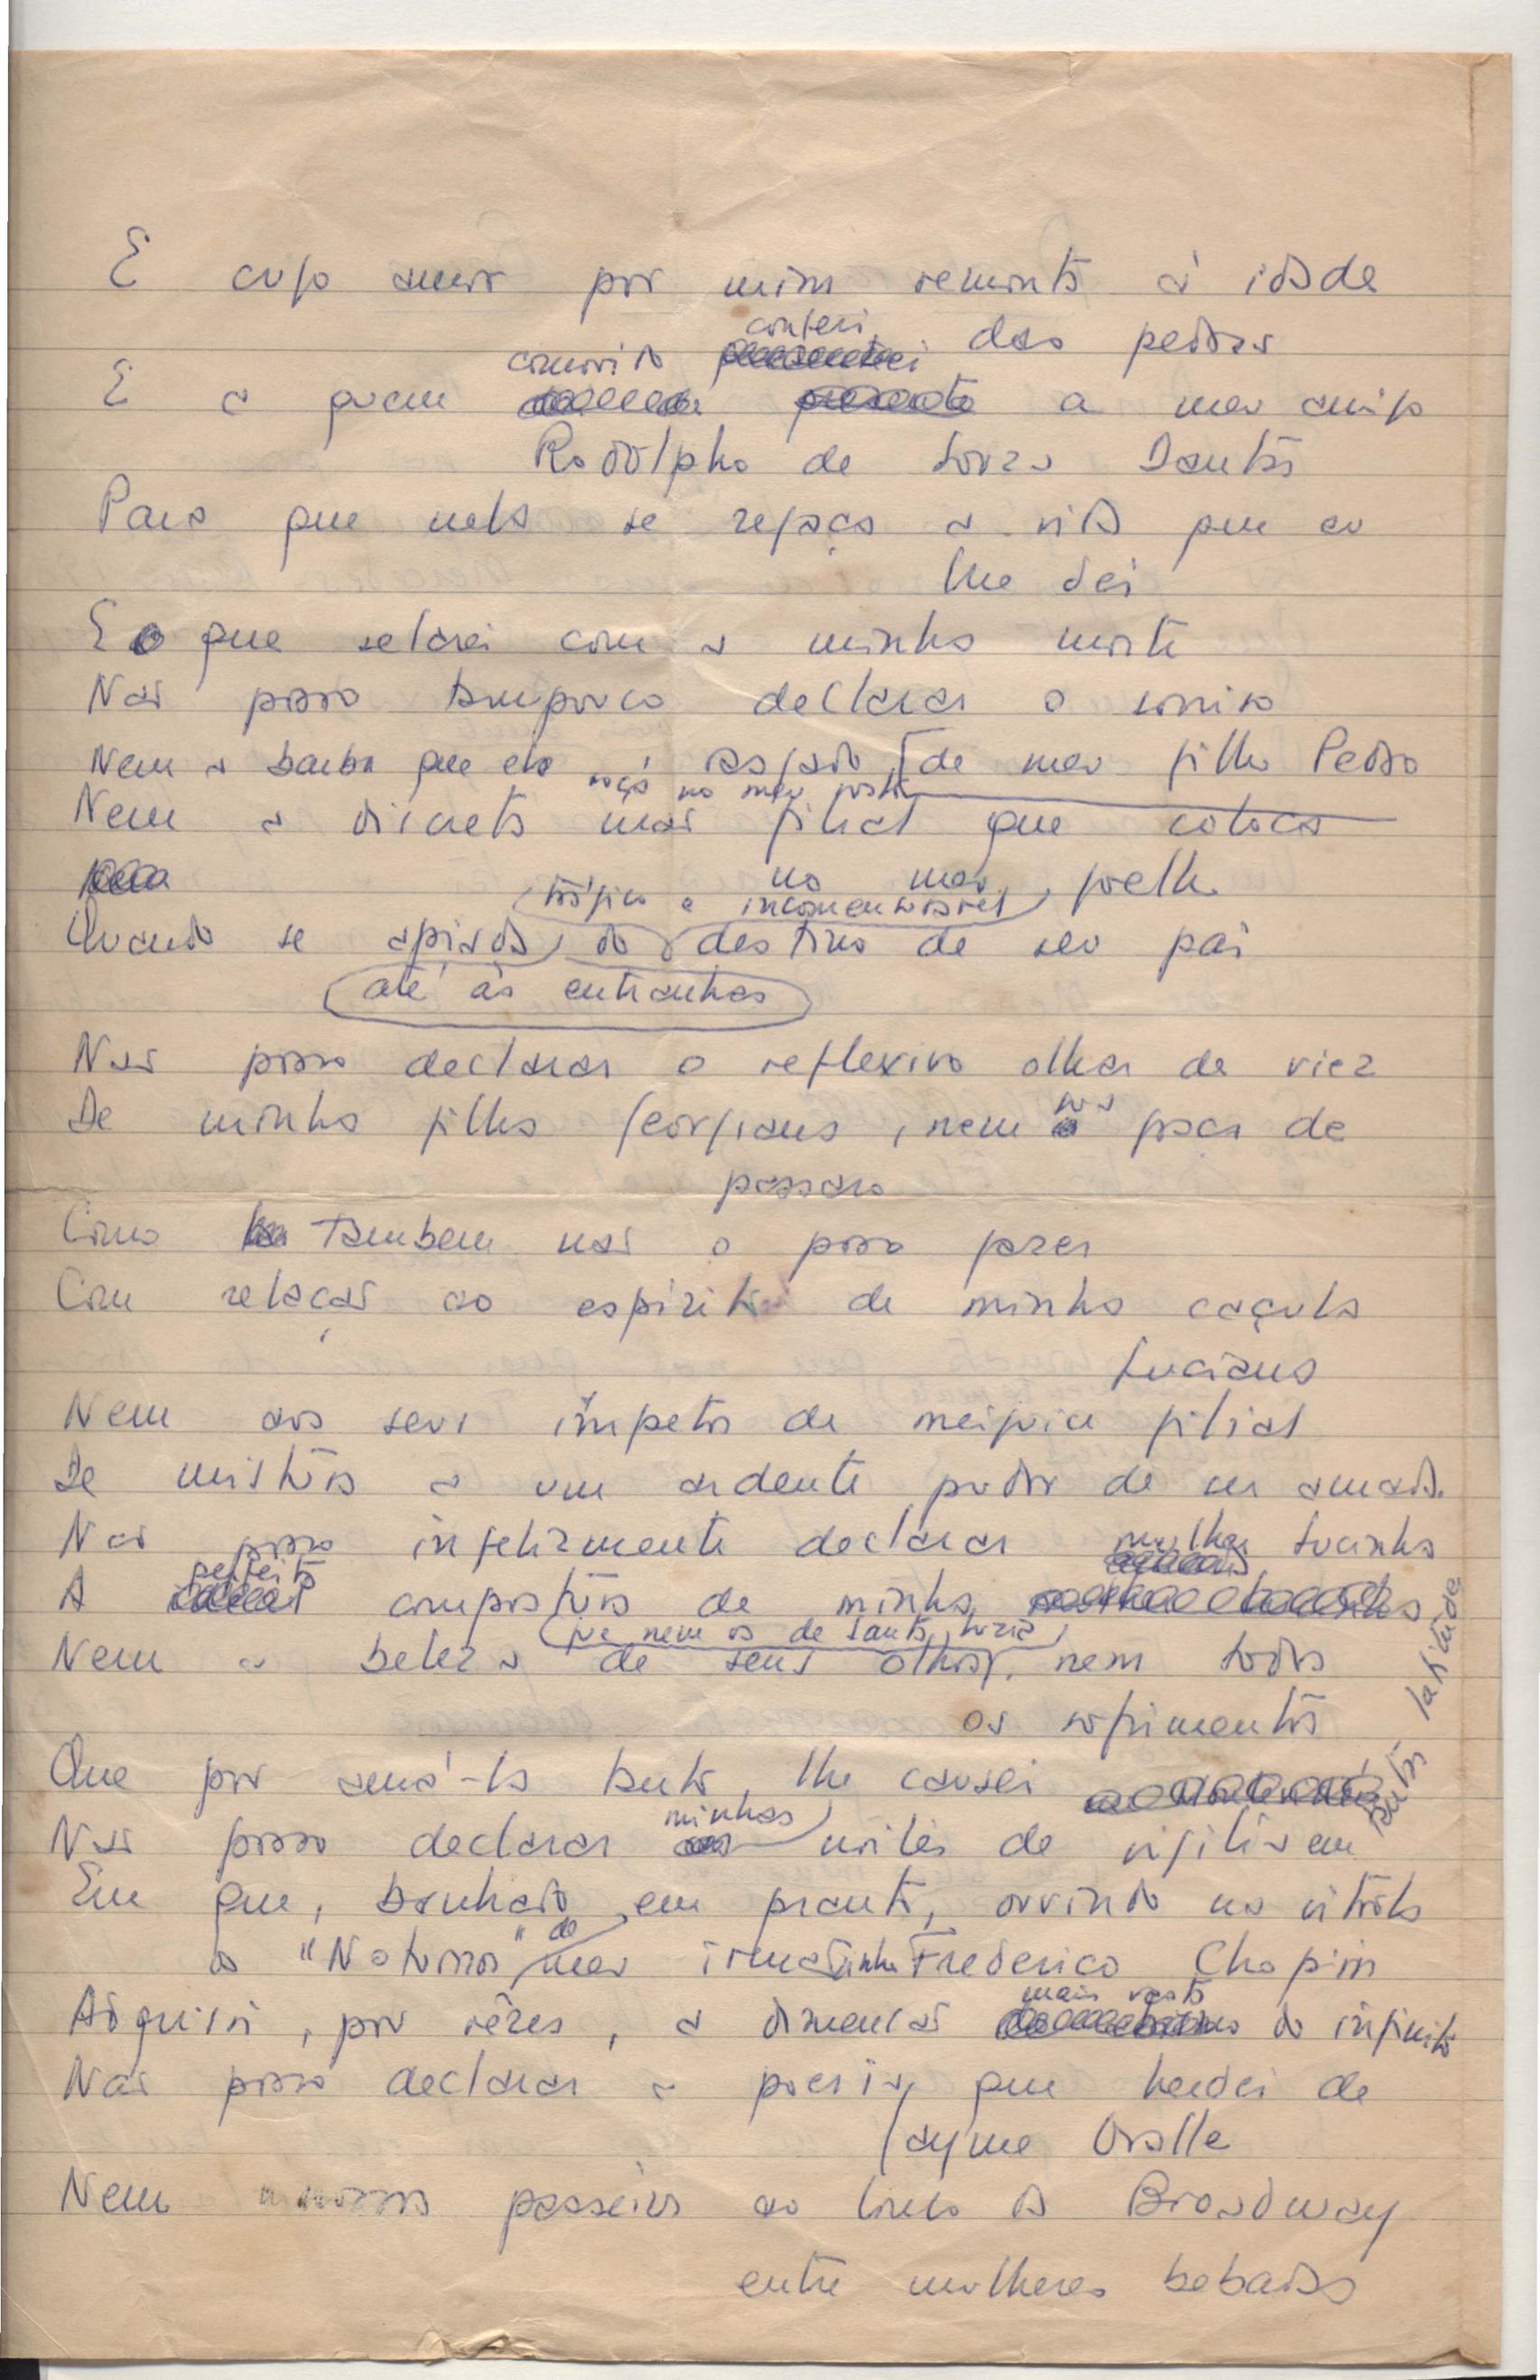 E cujo amor por mim remonta à idade
das pedras
conferi
comovido
E a quem a meu amigo
Rodolpho de Souza Dantas
Para que nela se refaça a vida que eu
lhe dei
E o que selarei com a minha morte
Não posso tampouco declarar o sorriso
Nem a barba que ela roça no meu rosto de meu filho Pedro
Nem a discreta mão filial que coloca
no meu joelho
trágico e incomensurável
Quando se apiada do destino de seu pai
até às entranhas
Não posso declarar o reflexivo olhar de viez
De minha filha Georgiana, nem sua graça de
passaro
Como tambem não o posso fazer
Com relação ao espirito de minha caçula
Luciana
Nem aos seus ímpetos de meiguice filial
De mistura a um ardente pudor de ser amada.
Não posso infelizmente declarar
perfeita mulher Lucinha
A compostura de minha
(que nem os de Santa Luzia)
Nem a beleza de seus olhos, nem todos
os sofrimentos
Que por amá-la tanto, lhe causei
minhas
Não posso declarar noites de vigilia em
tanta latitude
Em que, banhado em pranto, ouvindo na vitrola
os "Noturnos" de meu irmãozinho Frederico Chopin
mais vasta
Adquiri, por vêzes, a dimensão do infinito
Não posso declarar a poesia que herdei de
Jayme Ovalle
Nem nossos passeios ao longo da Broadway
entre mulheres bebadas